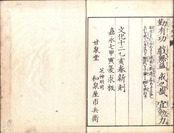 勤有功 戯無益 戒之哉 宜勉力
文化十二乙亥春新刻
嘉永七甲寅夏求板
甘泉堂
芝神明前
和泉屋市兵衛